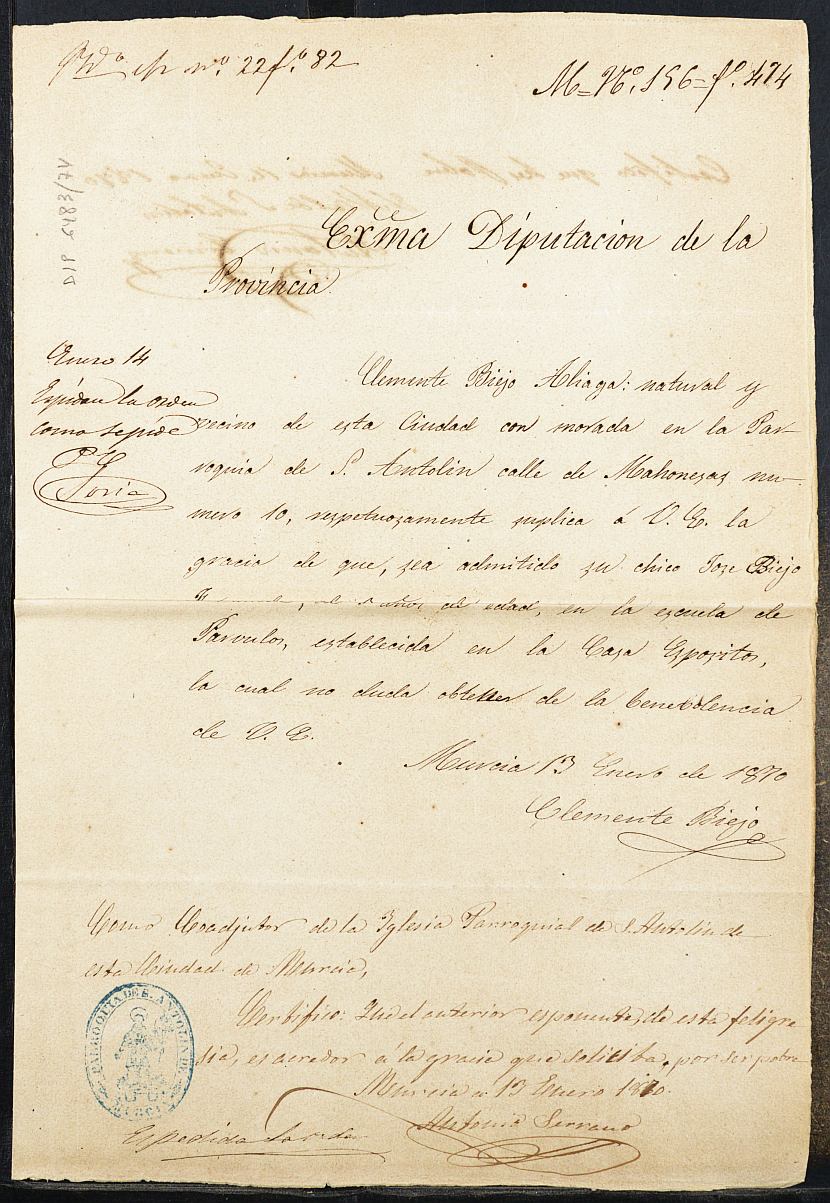 nº. 22 fº. 82
M=Nº. 156=fº. 474
DIP 6483/74
Exma Diputacion de la
Provincia.
Enero 14
Espidase la orden
como se pide
P. Y.
Soria
Clemente Biejo Aliaga: natural y
vecino de esta Ciudad con morada en la Par-
roquia de S. Antolin calle de Mahonesas nu-
mero 10, respetuosamente suplica á V. E. la
gracia de que, sea admitido su chico Jose Biejo
años de edad, en la escuela de
Parvulos, establecida en la Casa Espositos,
la cual no duda obtener de la benebolencia
de V. E.
Murcia 13 Enero de 1870
Clemente Biejo
Como Coadjutor de la Iglesia Parroquial de S. Antolin de
esta Ciudad de Murcia,
Certifico: Que el anterior esponente, de esta feligre
sia, es acredor á la gracia que solicita, por ser pobre
Murcia a 13 Enero 1870.
Antonio Serrano
PARROQUIA DE S. ANTOLIN DE
MURCIA
Espedida la orden